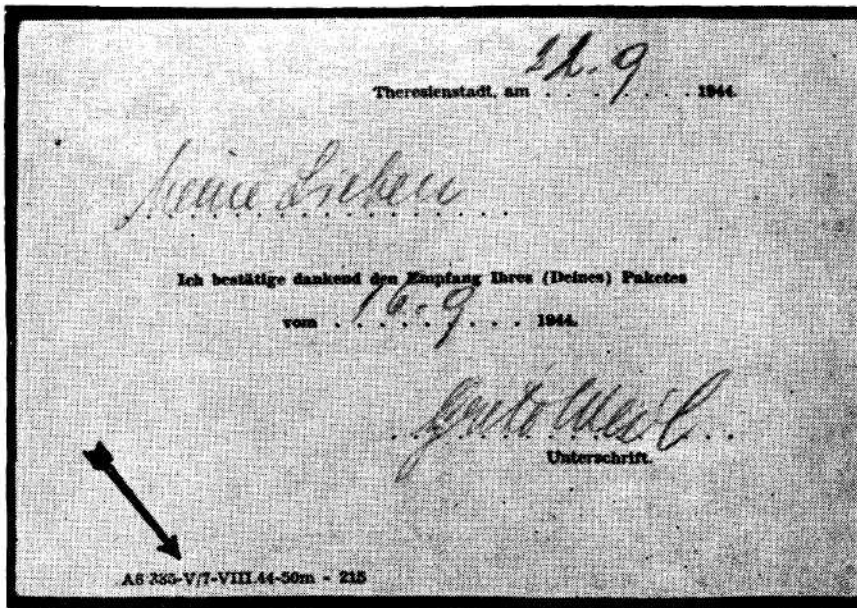 Theresienstadt, am 22.9 1944.
Meine Lieben
Ich bestätige dankend den Empfang Ihres (Deines) Paketes
vom 16.9 1944.
Weil
Unterschrift.
A6 335-V/7-VIII.44-50m - 215